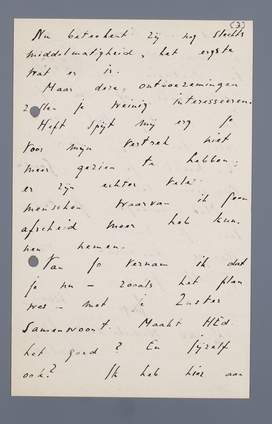 (3)
Nu beteekent zij nog slechts
middelmatigheid, het ergste
wat er is.
Maar deze ontboezemingen
zullen je weinig interesseeren.
Heft spijt mij erg je
voor mijn vertrek niet
meer gezien te hebben.
er zijn echter vele
menschen waarvan ik geen
afscheid meer heb kun-
nen nemen.
Van Jo vernam ik dat
je nu – zooals het plan
was – met je Zuster
samenwoont. Maakt
het goed? En jijzelf
ook? Ik heb hier aan